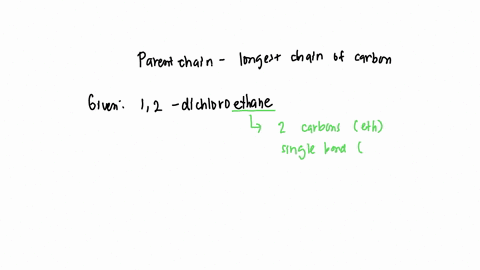 Parent chain - longest chain of carbon
Given: 1,2 -dichloroethane
2 carbons (eth)
single bond (